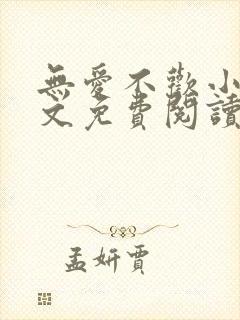 無愛不歡小
文免費閱讀
孟妍賈